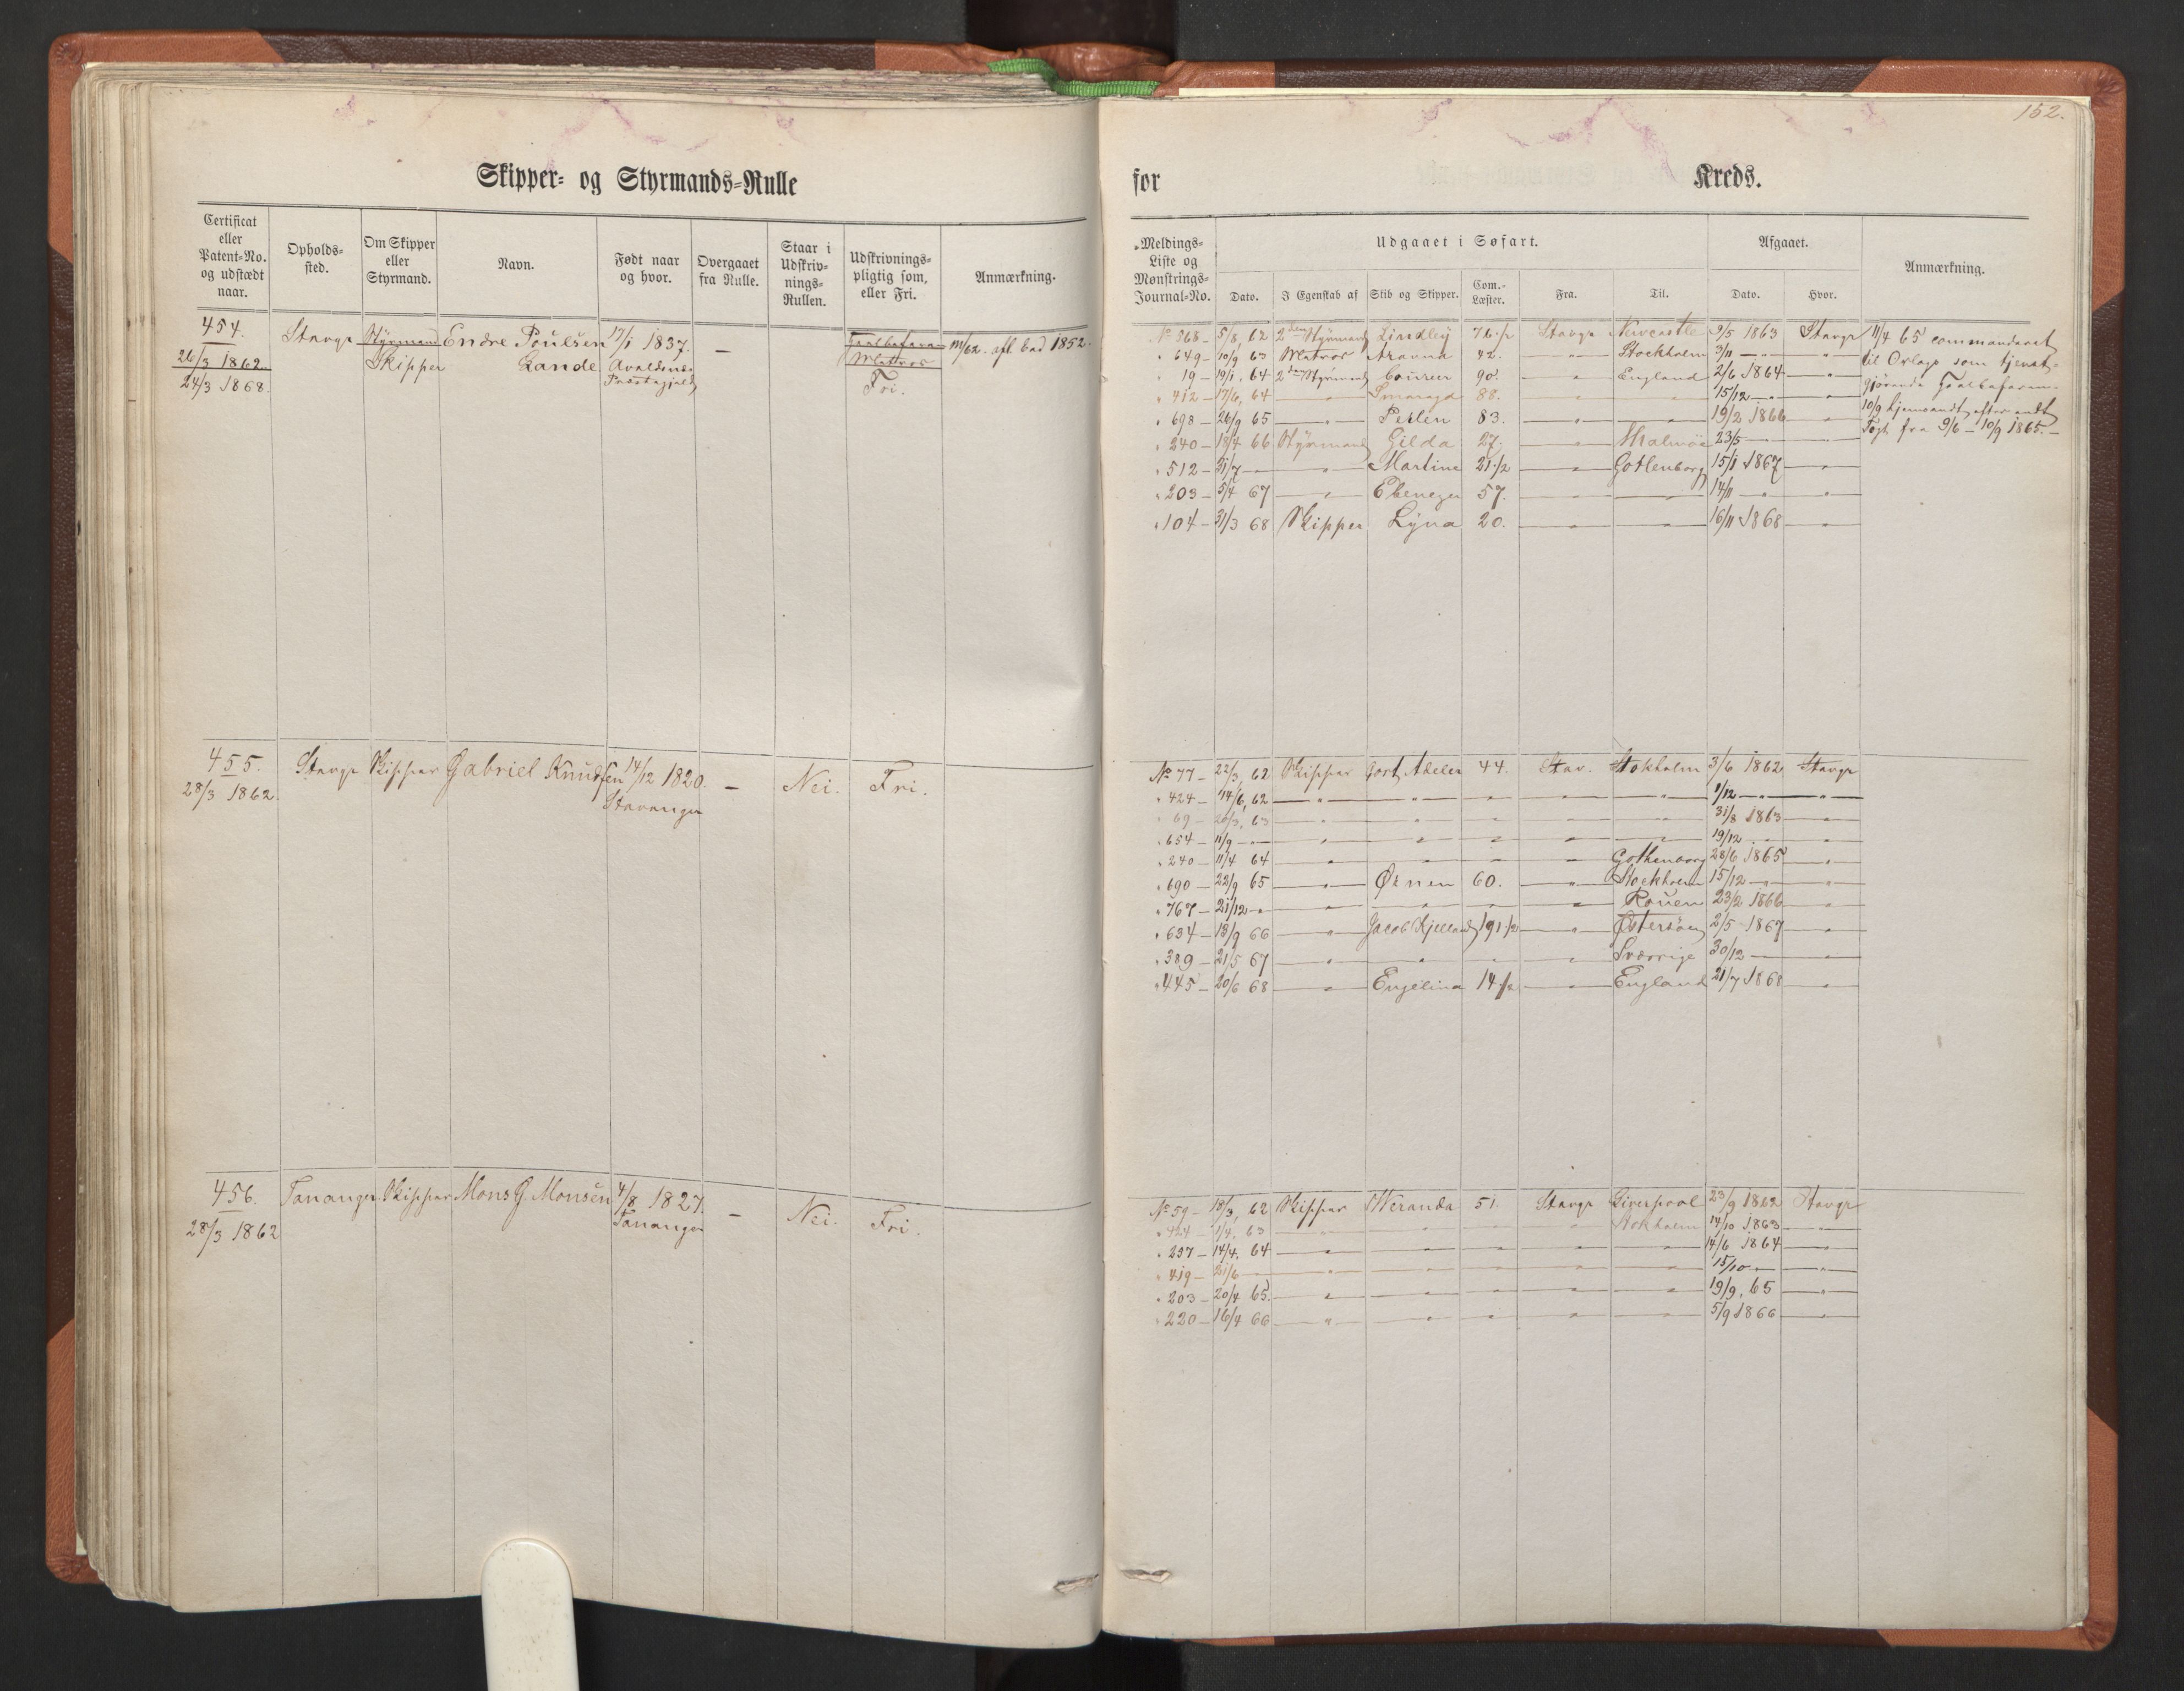 152.
Skipper- og Styrmands-Rulle
for Kreds.
Certificat eller Patent-No. og udstædt naar.
Opholds-sted.
Om Skipper eller Styrmand.
Navn.
Født naar og hvor.
Overgaaet fra Rulle.
Staar i Udskriv-nings-Rullen.
Udskrivnings-pligtig som, eller Fri.
Anmærkning.
Meldings-Liste og Mønstrings-Journal-No.
Udgaaet i Søfart.
Dato. I Egenskab af Skib og Skipper. Com.-Læster. Fra. Til.
Afgaaet.
Dato. Hvor.
Anmærkning.
454. Stavgr Styrmand Endre Poulsen 17/1 1837. – Matros
26/3 1862. Skipper Lande Avaldsnes Fri.
24/3 1868. Præstegjeld
No 568 – 5/8, 62 2den Styrmand Lindley 76 1/2 Stavgr Newcastle 9/5 1863 Stavgr
" 649 – 10/9 63 Matros Aravna 42. " Stockholm 3/11 – " "
" 19 – 19/1, 64 2den Styrmand Couren 90. " England 2/6 1864 "
" 412 – 17/6, 64 " Smaragd 88. " " 15/12 – " "
" 698 – 26/9 65 " Perlen 83. " " 19/2 1866 "
" 240 – 18/4 66 Styrmand Gilda 27. " Malmöe 23/5 – "
" 512 – 31/7 – " Martine 21 1/2 " Gotlenborg 15/1 1867 "
" 203 – 5/4 67 " Ebenezer 57. " " 14/11 – " "
" 104 – 31/3 68 Skipper Lyna 20. " " 16/11 1868 "
11/4 65 commanderet
til Orlogs som tjenst-
gjørende
10/9 hjemsendt efter endt
Togt fra 9/6 – 10/9 1865.–
455. Stavgr Skipper Gabriel Knudsen 14/12 1820. – Nei. Fri.
28/3 1862. Stavanger
No 77 – 22/3, 62 Skipper Cort Adeler 44. Stav. Stokholm 3/6 1862 Stavgr
" 424 – 14/6, 62 " " " " " 1/12 – "
" 69 – 20/3, 63 " " " " " 31/8 1863 "
" 654 – 11/9 – " " " " " " 19/12 " "
" 240 – 11/4 64 " " " " Gothenborg 28/6 1865 "
" 690 – 22/9 65 " Ørnen 60. " Stockholm 15/12 – " "
" 767 – 21/12 " " " " " Rouen 23/2 1866 "
" 634 – 18/9 66 " Jacob Kjelland 191 1/2 " Østersøen 2/5 1867 "
" 389 – 21/5 67 " " " " Sverrige 30/12 – "
" 445 – 20/6 68 " Engelina 14 1/2 " England 21/7 1868 "
456. Tananger Skipper Mons G. Monsen 4/8 1827. – Nei. Fri.
28/3 1862 Tananger
No 59 – 18/3, 62 Skipper Weranda 51. Stavgr Liverpool 23/9 1862 Stavgr
" 124 – 1/4, 63 " " " " Stokholm 14/10 1863 "
" 237 – 14/4, 64 " " " " " 14/6 1864 "
" 419 – 21/6 " " " " " 15/10 – "
" 203 – 20/4 65. " " " " " 19/9, 65 "
" 220 – 16/4 66 " " " " " 5/9 1866 "